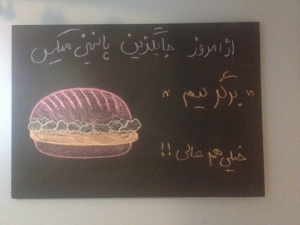 از امروز جایگزین پانینی میکس
" برگر نیم "
خیلی هم عالی !!